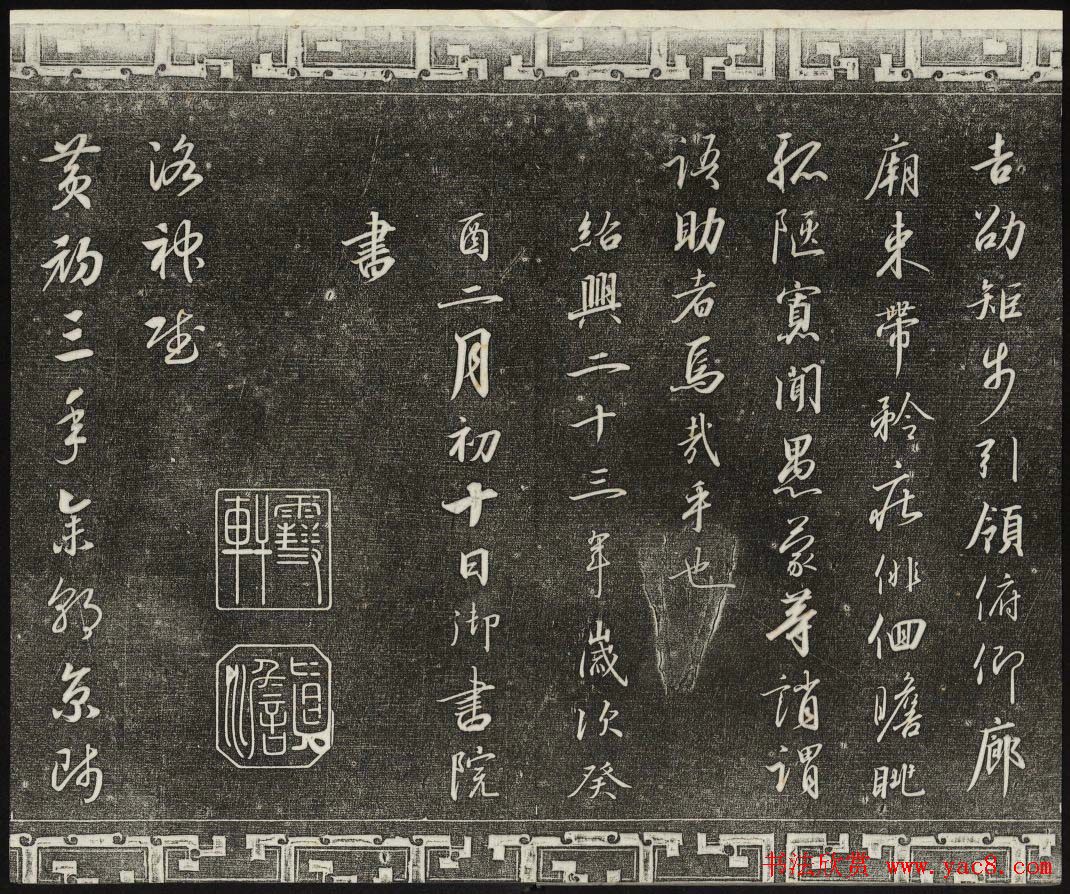 吉劭矩步引領俯仰廊
廟束帶矜莊俳佪瞻眺
孤陋寡聞愚蒙等誚謂
語助者焉哉乎也
紹興二十三年歲次癸
酉二月初十日御書院
書
洛神賦
黃初三年余朝京師
书法欣赏 www.yac8.com